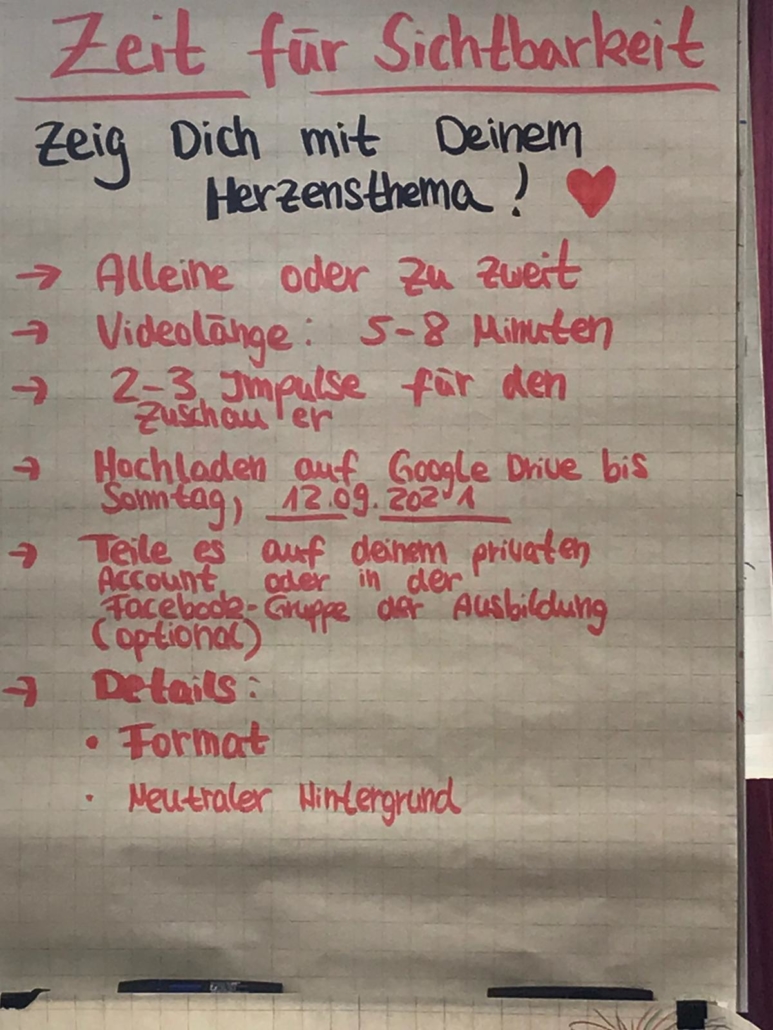 Zeit für Sichtbarkeit
Zeig Dich mit Deinem
Herzensthema! ♥
→ Alleine oder zu zweit
→ Videolänge: 5-8 Minuten
→ 2-3 Impulse für den
Zuschauer
→ Hochladen auf Google Drive bis
Sonntag, 12.09.2021
→ Teile es auf deinem privaten
Account oder in der
Facebook-Gruppe der Ausbildung
(optional)
→ Details:
• Format
• Neutraler Hintergrund